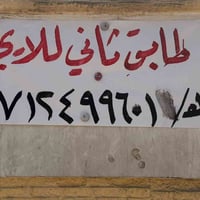 طابق ثاني للايجار
ت/٧١٢٤٩٩٦٠١